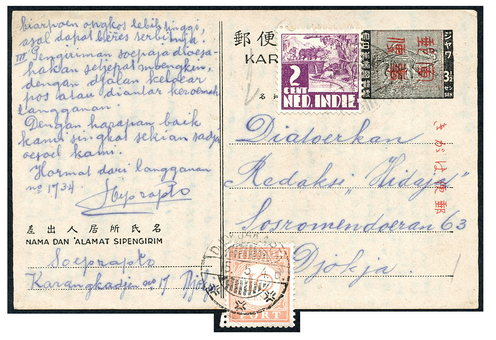 biarpoen ongkos lebih tinggi
asal dapat beres serbinja!
III Pengiriman soepaja dioesa-
hakan setjepat mbengken,
dengan djalan keloear
pos atau diantar keroemah
langganan.
Dengan harapan baik
kami singkat sekian sadja
oesoel kami.
Hormat dari langganan
no 1734.
Soeprapto
名氏所居人出差
NAMA DAN 'ALAMAT SIPENGIRIM
Soeprapto
Karangkadjen no 17 Djokja
郵便
KAR
2
CENT
NED. INDIE
ジヤワ
3½
きがは便郵
Diatoerkan
Redaksi „Hidajat"
Sosromendoeran 63
Djokja.
PORT